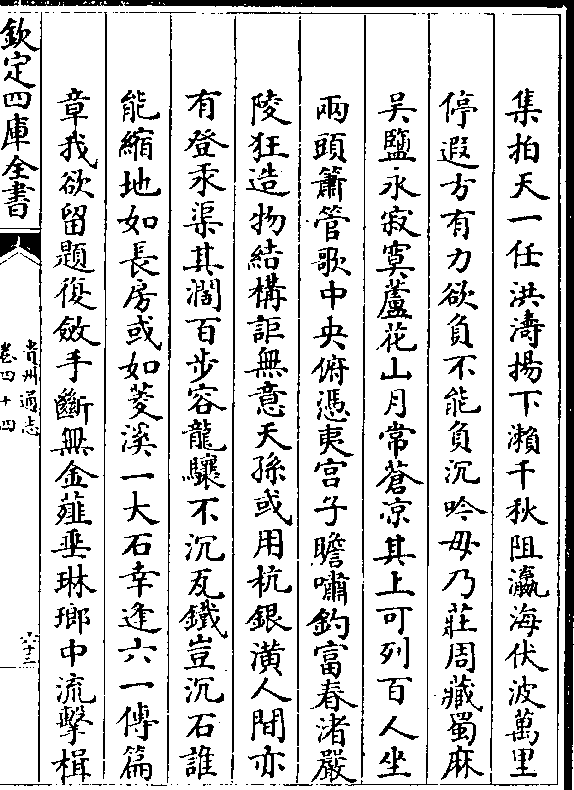 集拍天一任洪濤揚下瀨千秋阻瀛海伏波萬里
停遐方有力欲負不能負沉吟毋乃莊周藏蜀麻
吴鹽永寂寞蘆花山月常蒼凉其上可列百人坐
兩頭簫管歌中央俯憑夷宮子瞻嘯釣富春渚嚴
陵狂造物結構詎無意天孫或用杭銀潢人間亦
有登汞渠其濶百步容龍驤不沉瓦鐵豈沉石誰
能縮地如長房或如菱溪一大石幸逢六一傳篇
章我欲留題復斂手斷無金薤垂琳瑯中流擊楫
欽定四庫全書
貴州通志
卷四十四
六十三